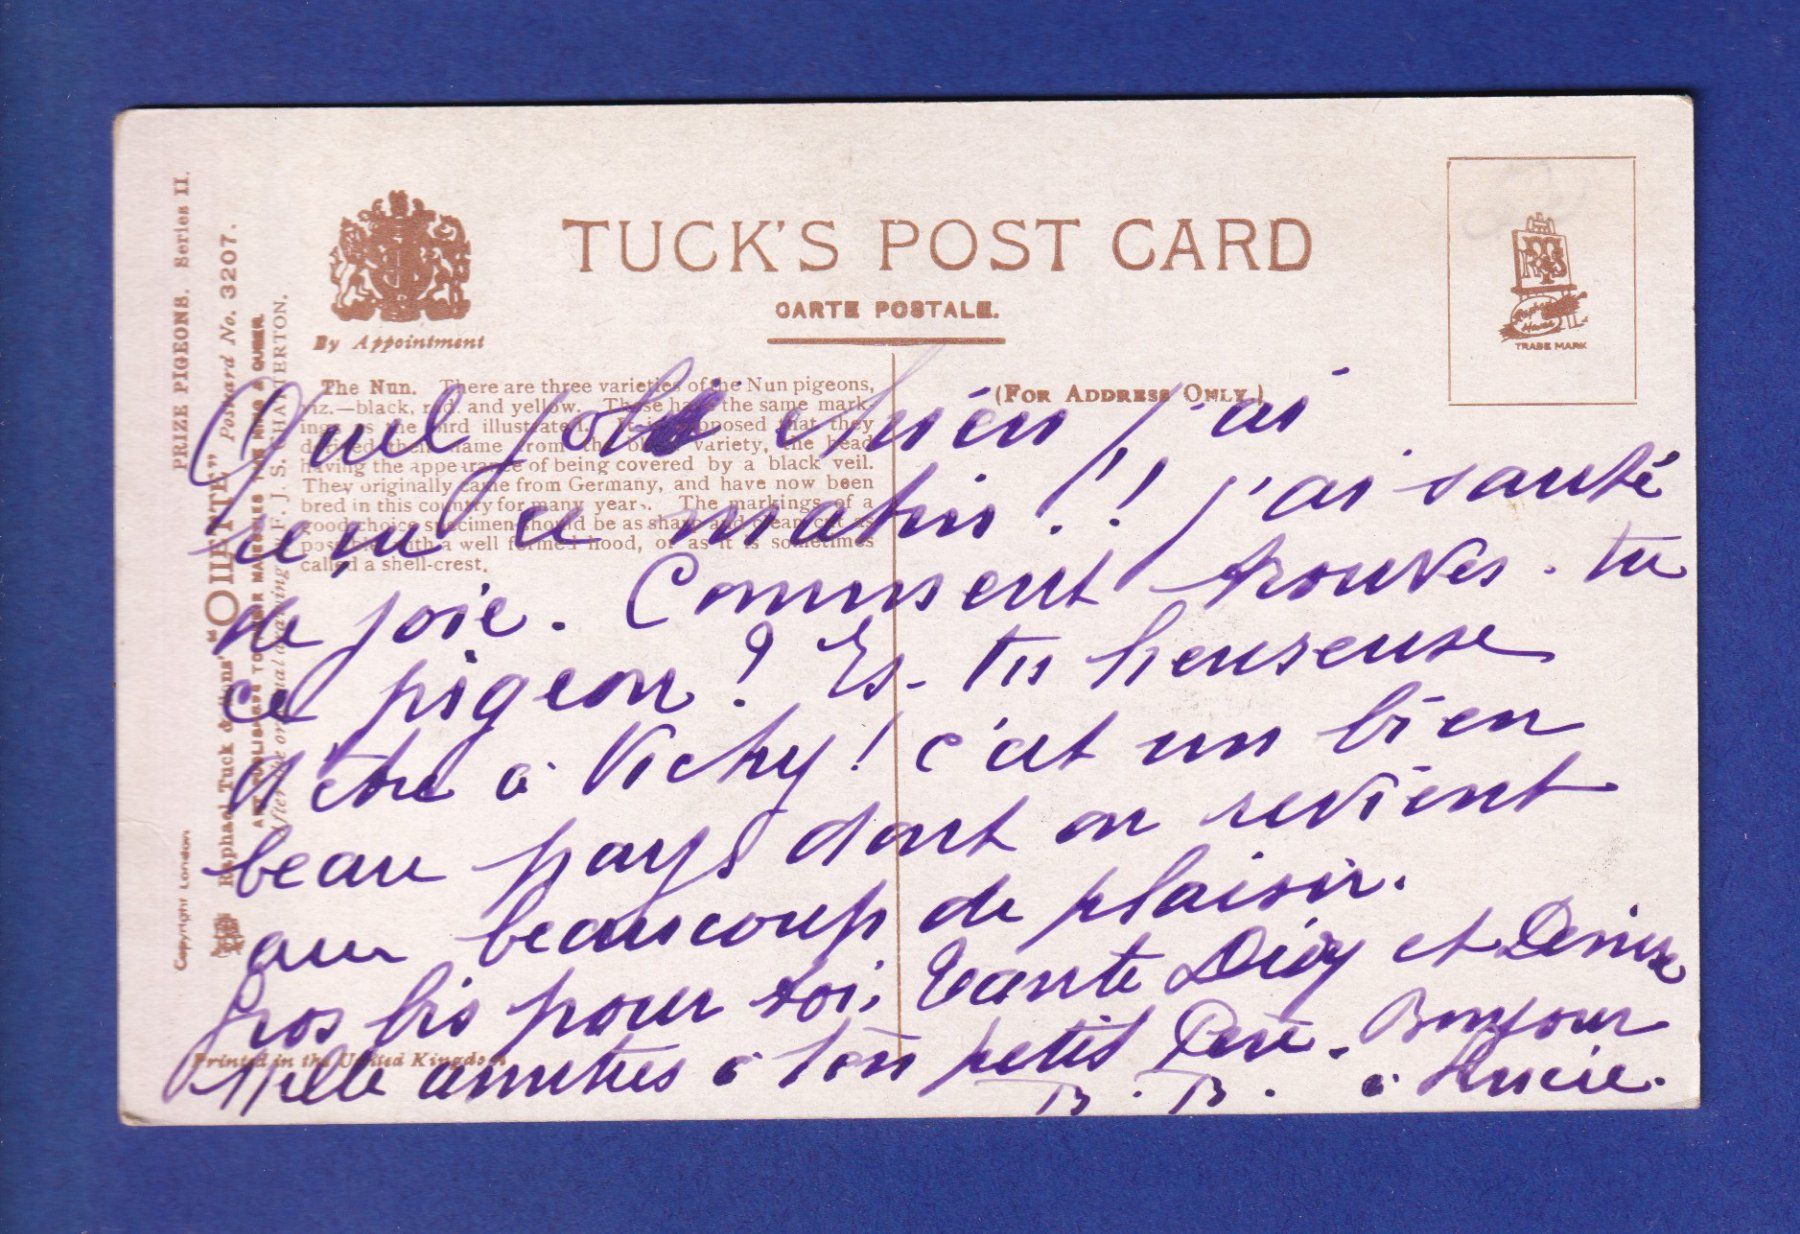 PRIZE PIGEONS. Series II.
Raphael Tuck & Sons' "OILETTE" Postcard No. 3207.
ART PUBLISHERS TO THEIR MAJESTIES THE KING & QUEEN.
After the original drawing by F. J. S. CHATTERTON.
Copyright London
By Appointment
TUCK'S POST CARD
CARTE POSTALE.
(FOR ADDRESS ONLY.)
TRADE MARK
The Nun. There are three varieties of the Nun pigeons,
viz.—black, red, and yellow. These have the same mark-
ings as the bird illustrated. It is supposed that they
derived their name from the black variety, the head
having the appearance of being covered by a black veil.
They originally came from Germany, and have now been
bred in this country for many years. The markings of a
good choice specimen should be as sharp and clean cut as
possible with a well formed hood, or as it is sometimes
called a shell-crest.
Quel joli chien j'ai
reçu ce matin!! j'ai sauté
de joie. Comment trouves-tu
ce pigeon? Es-tu heureuse
d'être à Vichy! c'est un bien
beau pays dont on revient
avec beaucoup de plaisir.
Gros bis pour toi, Tante Didy et Denise
Mille amitiés à ton petit Père. Bonjour
B. B. à Lucie.
Printed in the United Kingdom